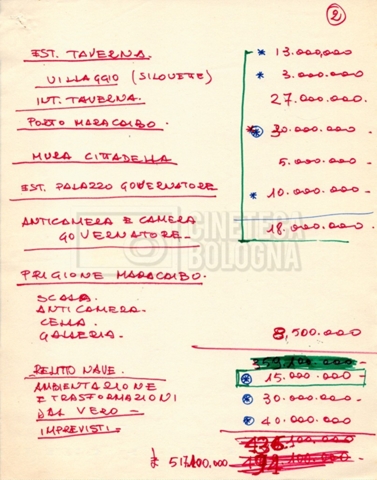 2
EST. TAVERNA. * 13.000,000
VILLAGGIO (SILOUETE) * 3.000.000
INT. TAVERNA. 27.000.000.
PORTO MARACAIBO. * 30.000.000 -
MURA CITTADELLA 5.000.000 -
EST. PALAZZO GOVERNATORE * 10.000.000 -
ANTICAMERA E CAMERA
GOVERNATORE - 18.000.000
CINETECA
BOLOGNA
PRIGIONE MARACAIBO.
SCALA.
ANTICAMERA.
CELLA.
GALLERIA. 8,500.000
RELITTO NAVE. * 15.000.000 -
AMBIENTAZIONE
E TRASFORMAZIONI * 30.000.000 -
DAL VERO -
IMPREVISTI. * 40.000.000 -
£ 517.100.000